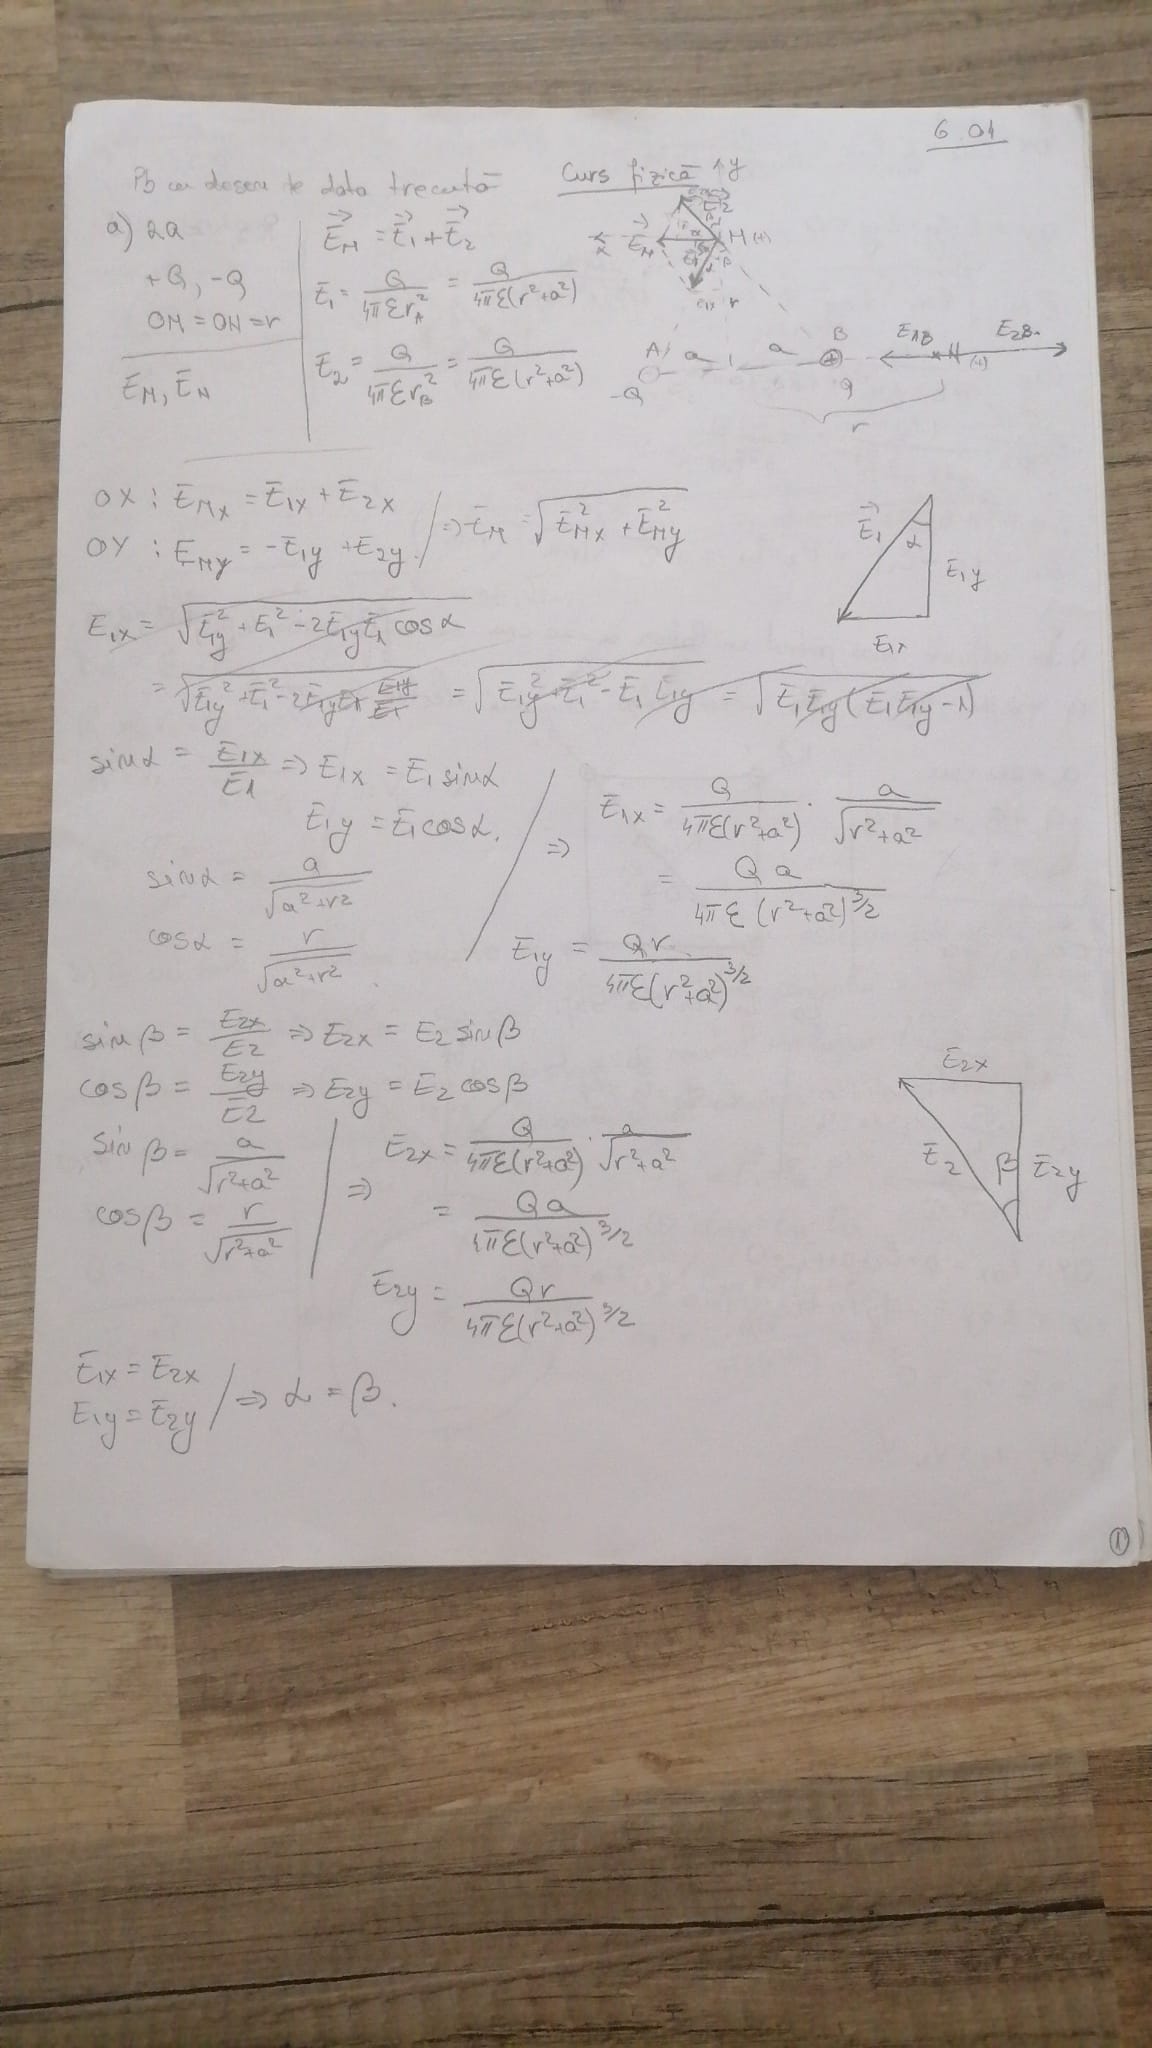 6.01
Pb cu desen de data trecută
Curs fizică
a) 2a
+Q, -Q
OM = ON = r
E_M, E_N
E⃗_M = E⃗_1 + E⃗_2
E_1 = Q/(4πε r_A^2) = Q/(4πε(r^2+a^2))
E_2 = Q/(4πε r_B^2) = Q/(4πε(r^2+a^2))
y
x E⃗_M M (+)
r
A a a B E_1B N E_2B
-Q Q (+)
r
OX : E_Mx = E_1x + E_2x
OY : E_My = -E_1y + E_2y / => E_M = √(E_Mx^2 + E_My^2)
E⃗_1 α E_1y
E_1x
E_1x = √(E_1y^2 + E_1^2 - 2E_1yE_1 cosα)
= √(E_1y^2 + E_1^2 - 2E_1yE_1 E_1y/E_1) = √(E_1y^2 + E_1^2 - E_1 E_1y) = √(E_1E_1y(E_1E_1y-1))
sinα = E_1x/E_1 => E_1x = E_1 sinα
E_1y = E_1 cosα.
sinα = a/√(a^2+r^2)
cosα = r/√(a^2+r^2)
=> E_1x = Q/(4πε(r^2+a^2)) · a/√(r^2+a^2)
= Qa/(4πε (r^2+a^2)^3/2)
E_1y = Qr/(4πε(r^2+a^2)^3/2)
sinβ = E_2x/E_2 => E_2x = E_2 sinβ
cosβ = E_2y/E_2 => E_2y = E_2 cosβ
sinβ = a/√(r^2+a^2)
cosβ = r/√(r^2+a^2)
=> E_2x = Q/(4πε(r^2+a^2)) · a/√(r^2+a^2)
= Qa/(4πε(r^2+a^2)^3/2)
E_2y = Qr/(4πε(r^2+a^2)^3/2)
E_2x
E_2 β E_2y
E_1x = E_2x
E_1y = E_2y / => α = β.
1